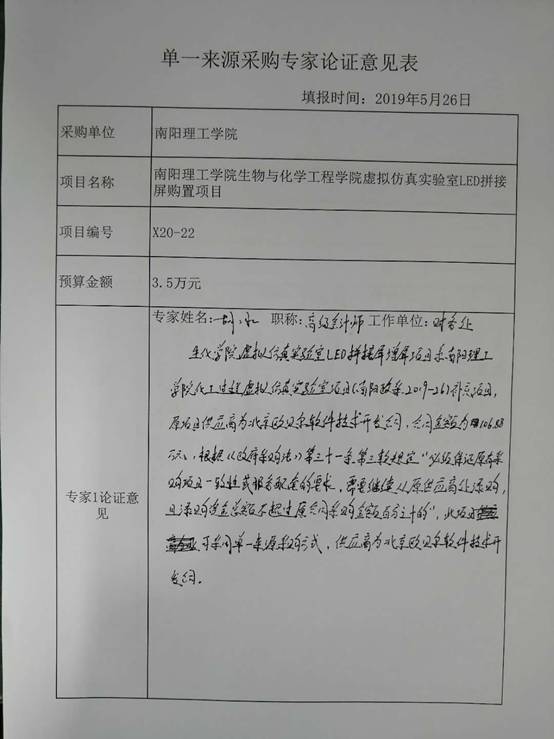 单一来源采购专家论证意见表
填报时间：2019年5月26日
采购单位
南阳理工学院
项目名称
南阳理工学院生物与化学工程学院虚拟仿真实验室LED拼接
屏购置项目
项目编号
X20-22
预算金额
3.5万元
专家1论证意
见
专家姓名： 职称：高级会计师 工作单位：财务处
生化学院虚拟仿真实验室LED拼接屏增屏项目系南阳理工
学院化工过程虚拟仿真实验室项目(南阳政采2019-26)补充项目，
原项目供应商为北京欧贝尔软件技术开发公司，合同金额为106.58
万元，根据《政府采购法》第三十一条第三款规定"必须保证原有采
购项目一致性或服务配套的要求，需要继续从原供应商处添购，
且添购资金总额不超过原合同采购金额百分之十的"，此项目
可采用单一来源采购方式，供应商为北京欧贝尔软件技术开
发公司。